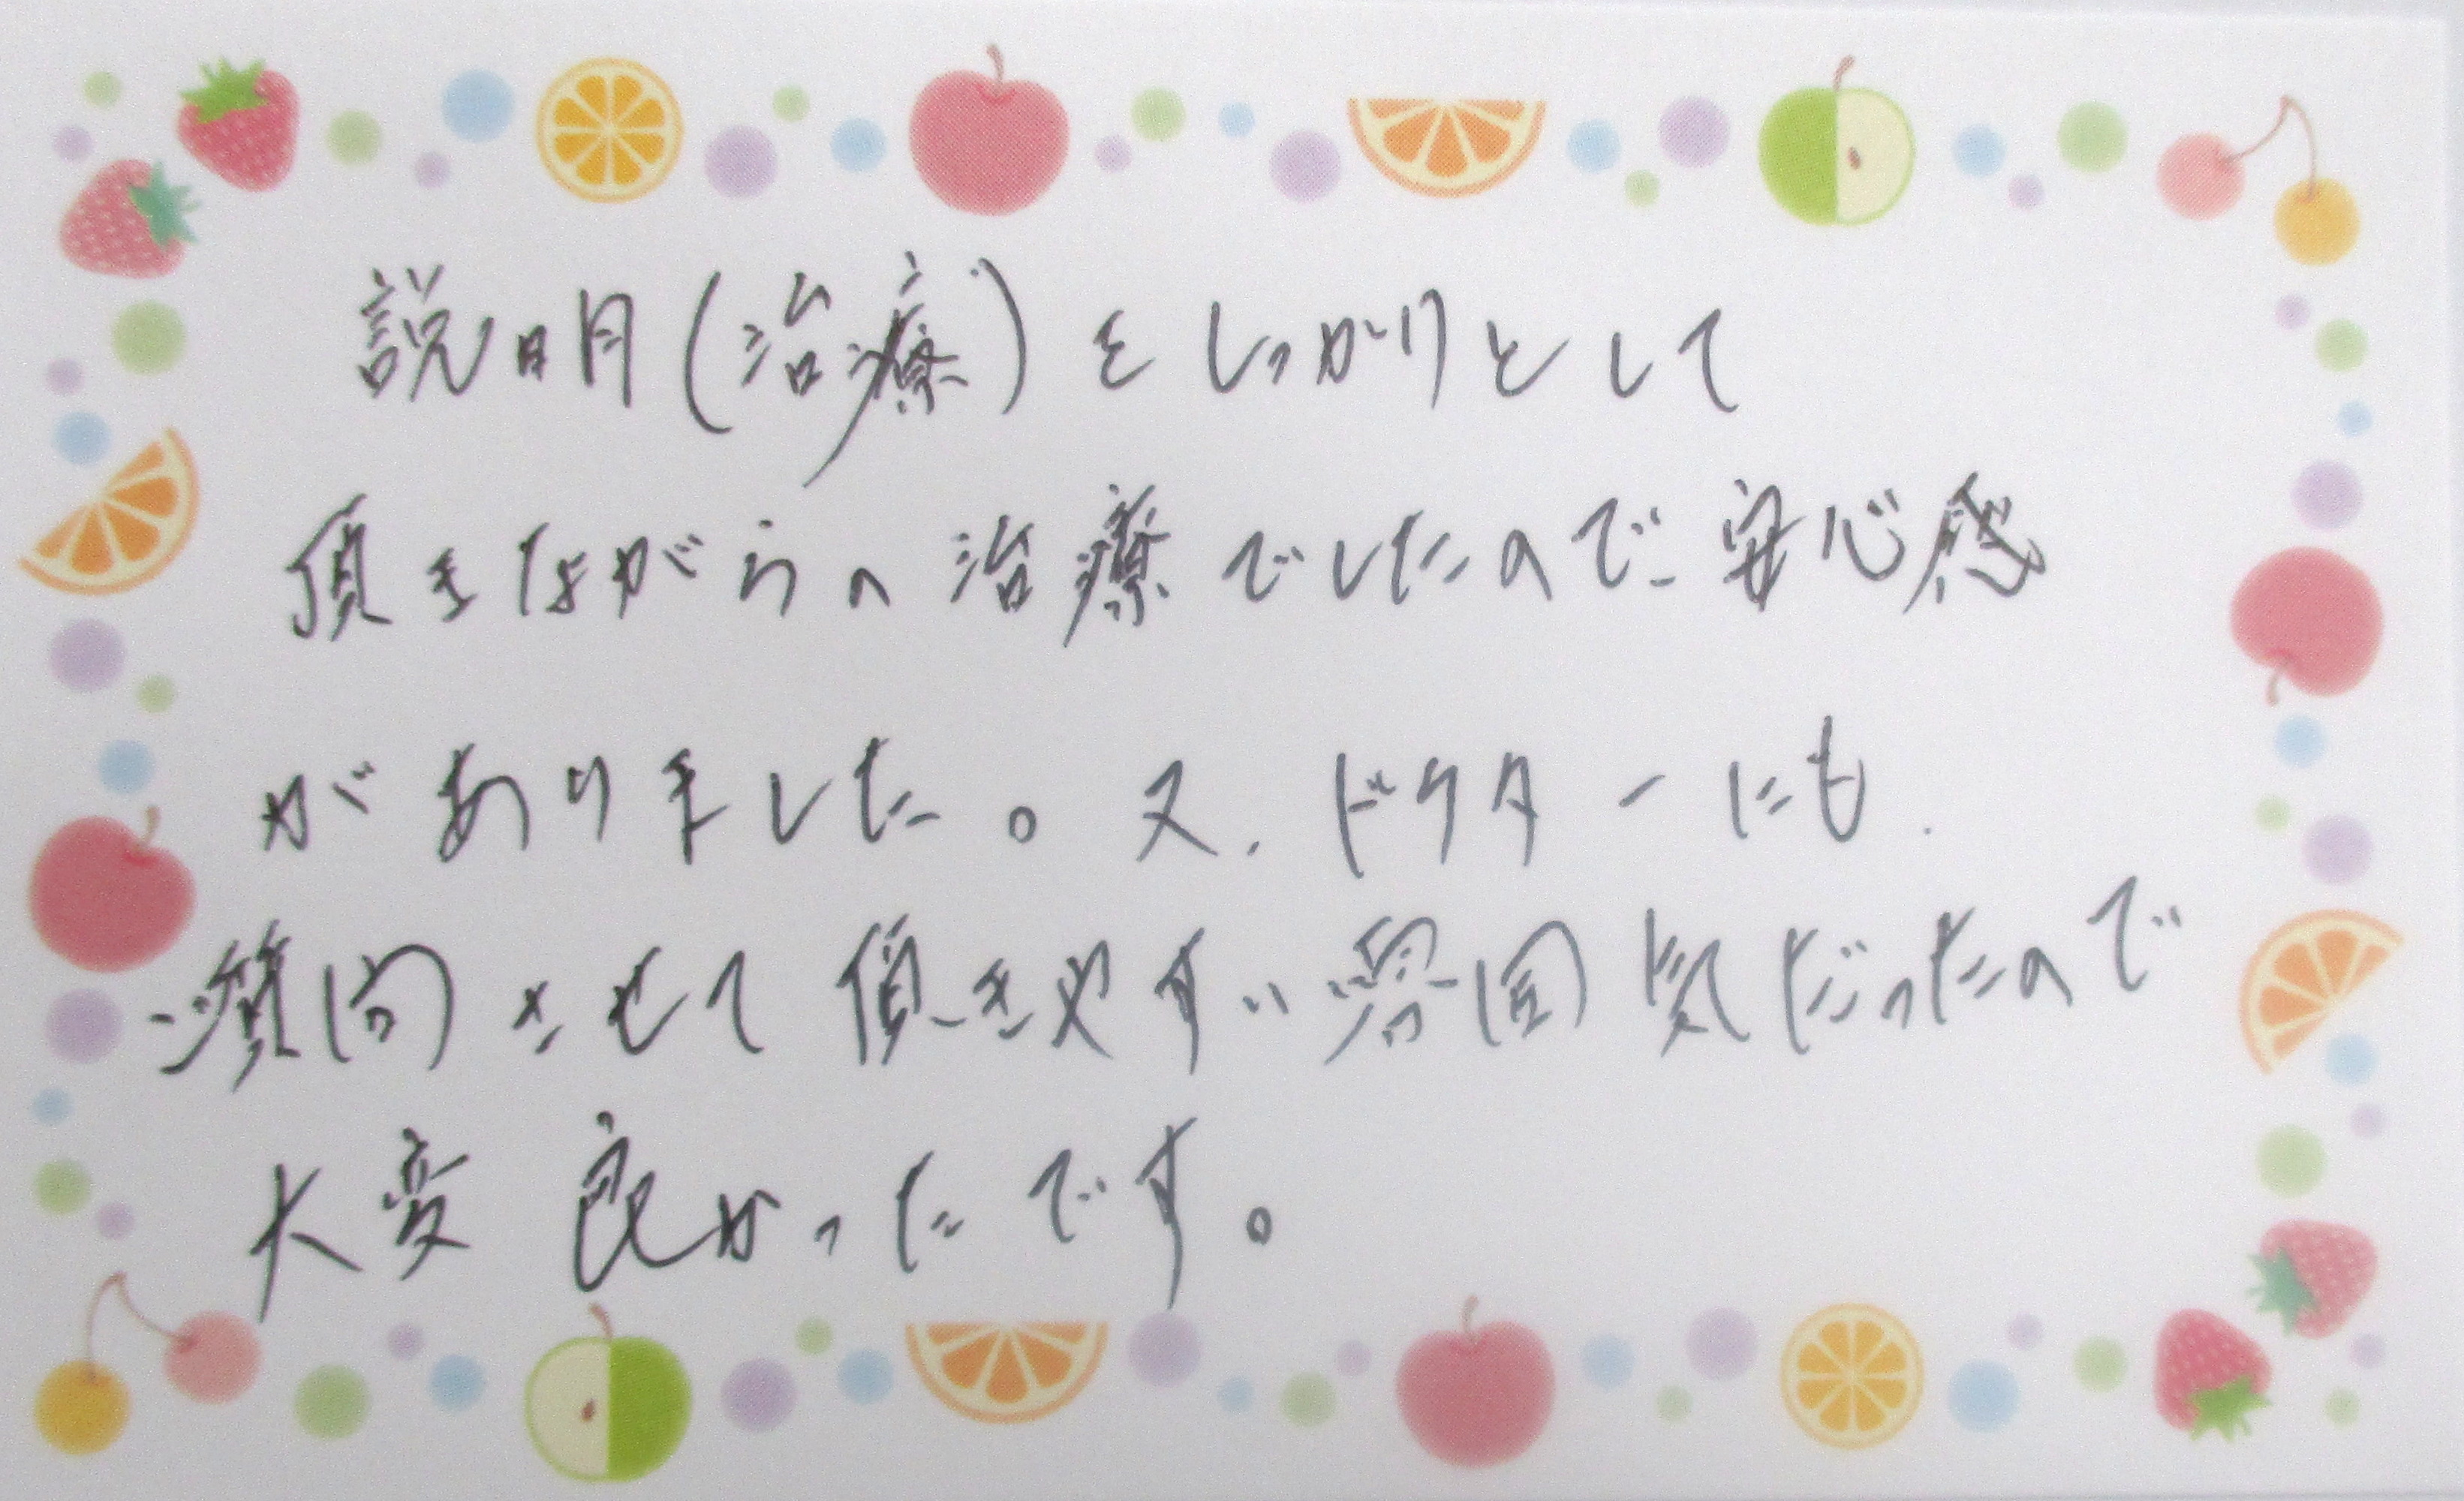 説明(治療)をしっかりとして
頂きながらの治療でしたので安心感
がありました。又、ドクターにも、
質問させて頂きやすい雰囲気だったので
大変良かったです。